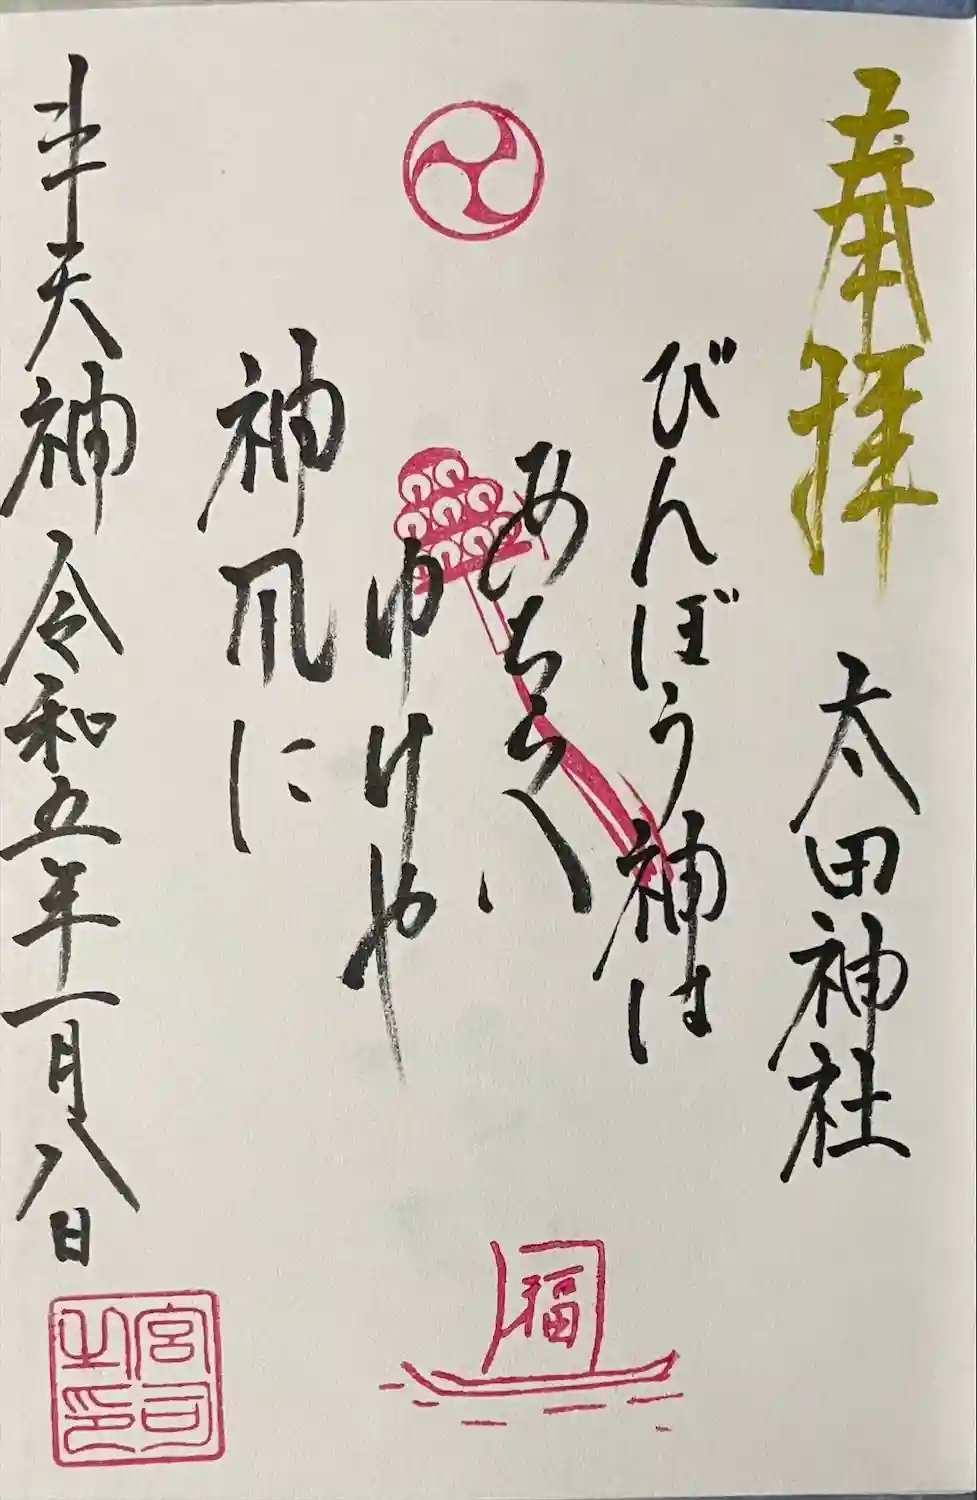 奉拝
太田神社
びんぼう神は
あちらへ
ゆけや
神風に
斗天神 令和五年一月八日
福
宮司之印